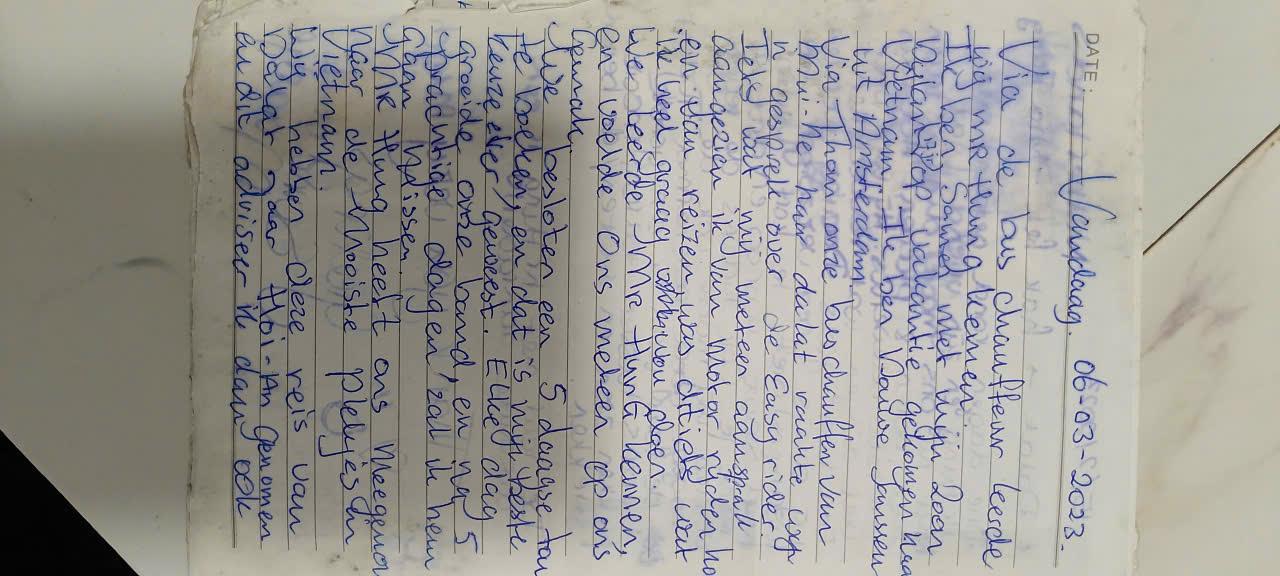 DATE:
Vandaag 06-03-2023.
Via de bus chauffeur leesde
wij mr Hung kennen.
Ik ben Samen met mijn Zoon
Dylan op vakantie gekomen naar
Vietnam. Ik ben Dauve Janssen
uit Amsterdam.
Via Thom onze buschauffeur van
Mui-ne naar dalat raakte wij
in gesprek over de Easy rider.
Ick wat mij meteen aansprak
aangezien ik van motor ryden ho
en van reizen, was dit iets wat
ik heel graag wou doen.
We leerde Mr Hung kennen,
en voelde ons meteen op ons
Gemak.
Wie besloten een 5 daagse tou
te boeken, en dat is mijn beste
keuze ever, geweest. Elke dag
groeide onze band, en na 5
prachtige dagen, zall ik hem
gaan missen.
MR Hung heeft ons meegenom
naar de mooiste plekjes in
Vietnam.
Wij hebben deze reis van
Dalat naar Hoi-An genomen
en dit adviser ik dan ook